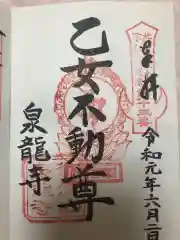 奉拝
令和元年六月二日
乙女不動尊
泉龍寺